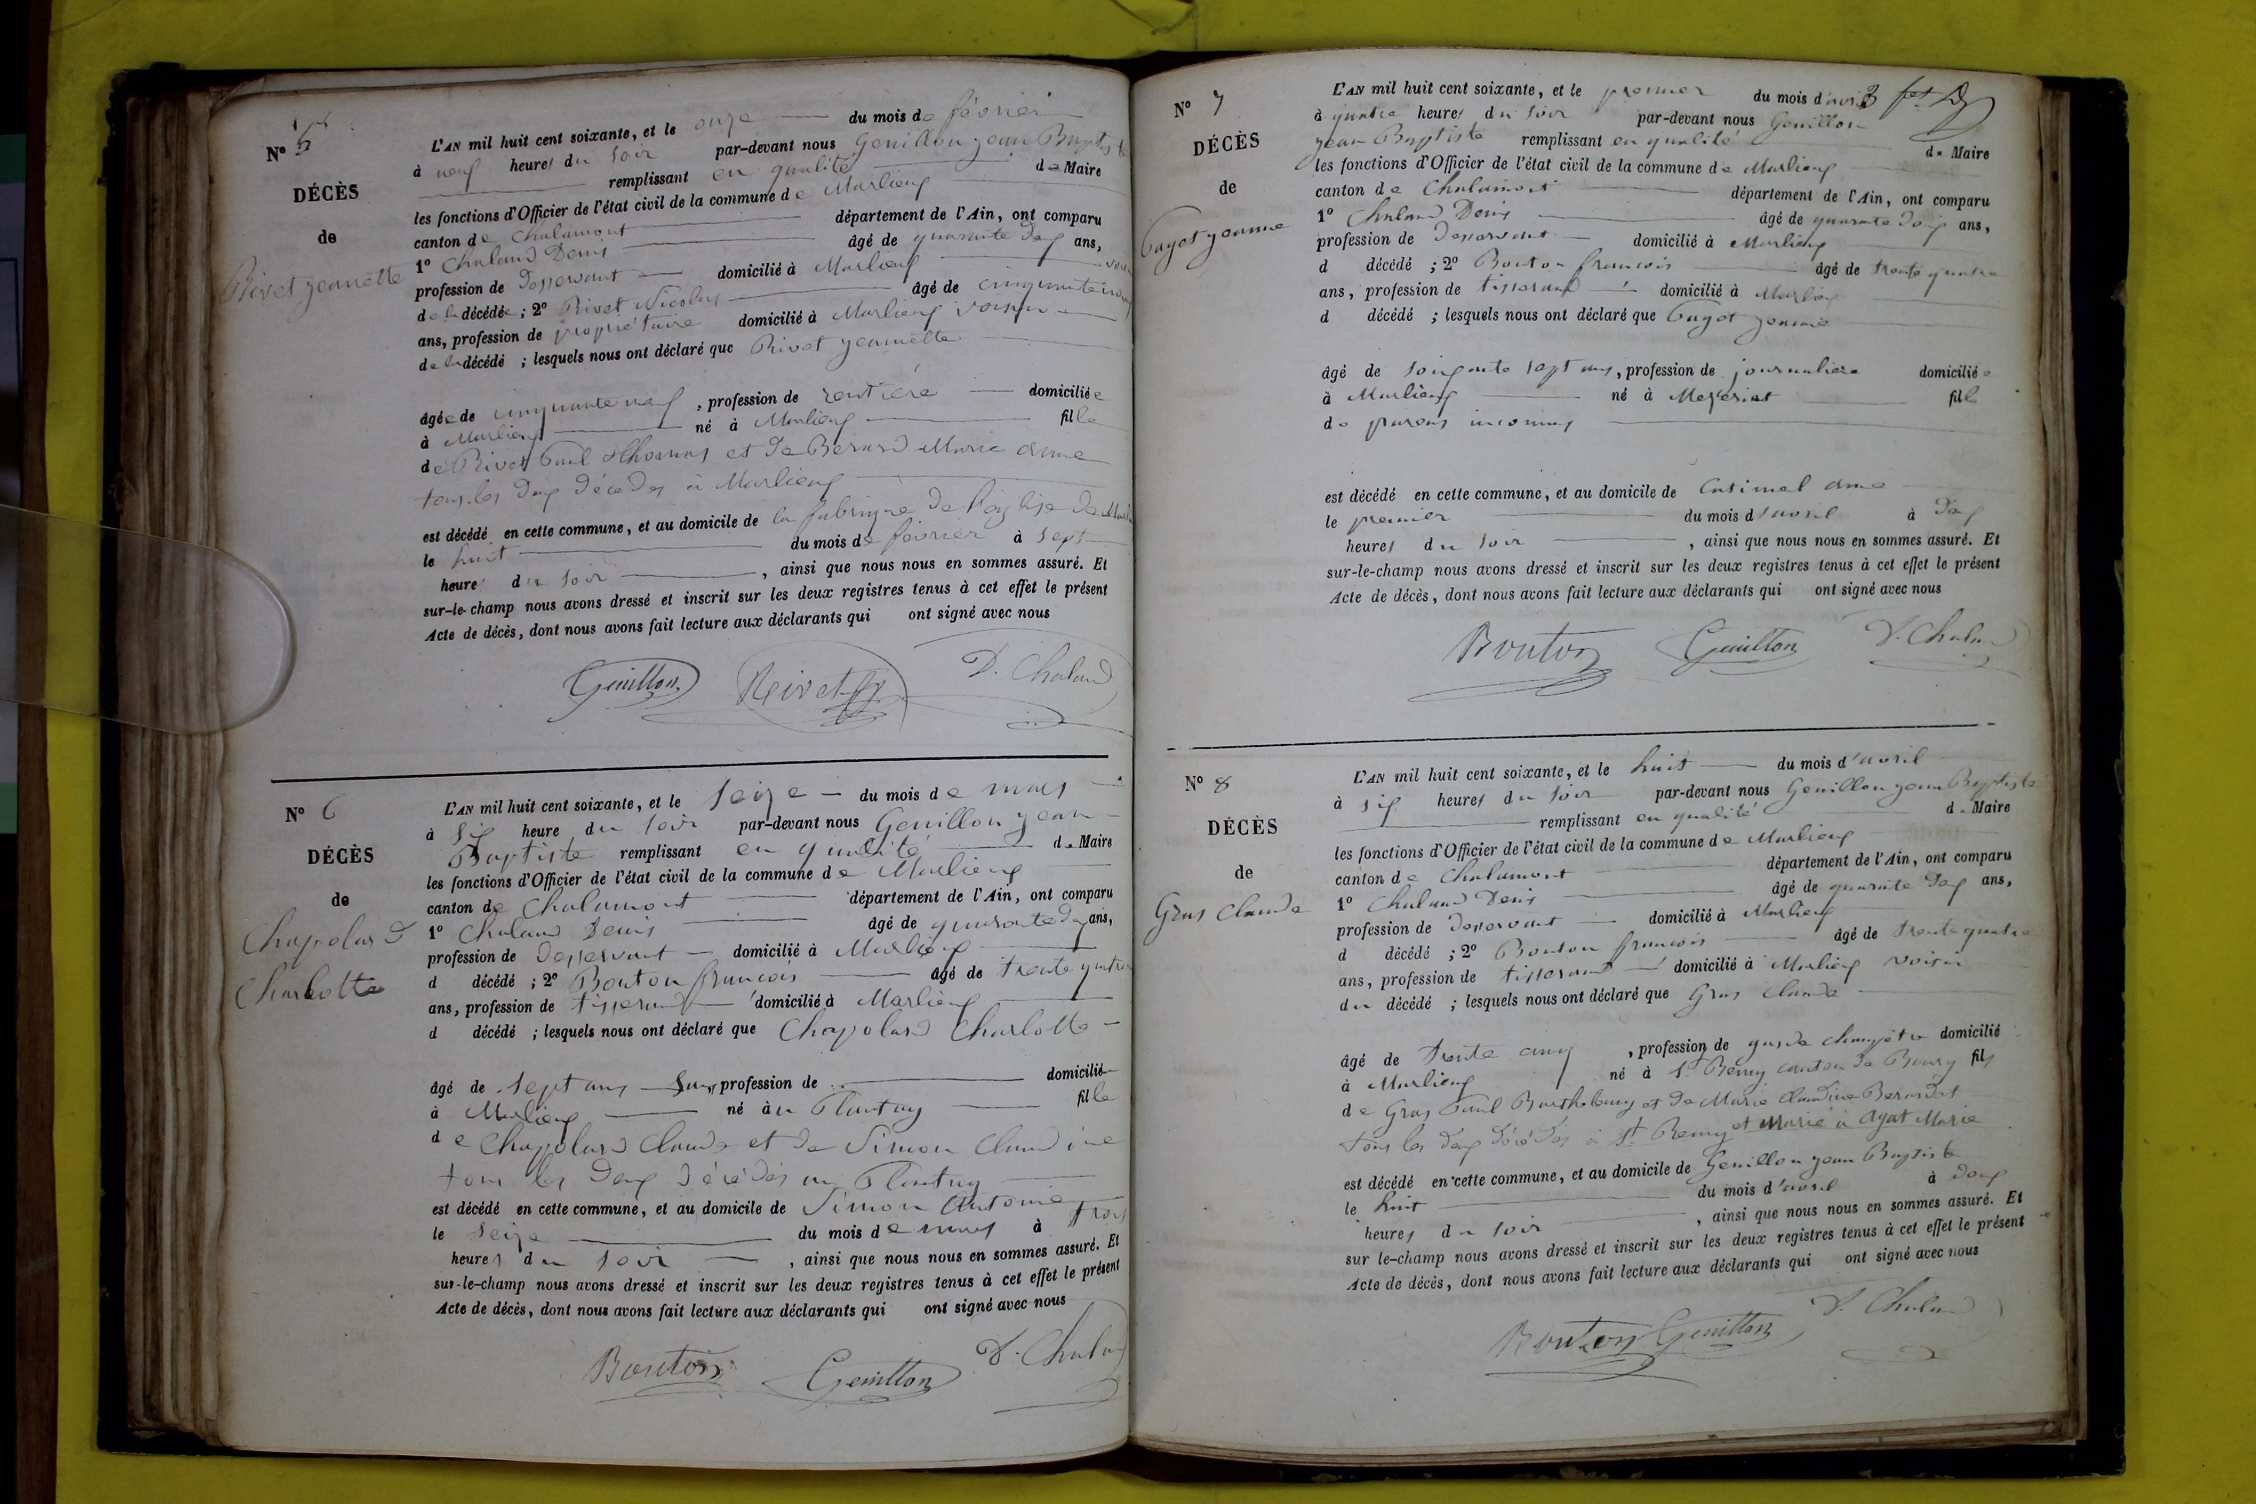 N° 5
DÉCÈS
de
Rivet jeanette
L'AN mil huit cent soixante, et le onze du mois de février
à neuf heures du soir par-devant nous Genillon jean Baptiste
remplissant en qualité de Maire
les fonctions d'Officier de l'état civil de la commune de Marlieux
canton de Chalamont département de l'Ain, ont comparu
1° Chaland Denis âgé de quarante deux ans,
profession de desservant domicilié à Marlieux voisin
de la décédée ; 2° Rivet Nicolas âgé de cinquante
ans, profession de propriétaire domicilié à Marlieux voisin
de la décédé ; lesquels nous ont déclaré que Rivet jeannette
âgée de cinquante neuf , profession de rentière domiciliée
à Marlieux né à Marlieux fille
de Rivet Paul Thomas et de Berard Marie anne
tous les deux décédés à Marlieux
est décédé en cette commune, et au domicile de la fabrique de l'église de
le huit du mois de février à sept
heure du soir , ainsi que nous nous en sommes assuré. Et
sur-le-champ nous avons dressé et inscrit sur les deux registres tenus à cet effet le présent
Acte de décès, dont nous avons fait lecture aux déclarants qui ont signé avec nous
Genillon Rivet D. Chaland
N° 6
DÉCÈS
de
Chapolard
Charlotte
L'AN mil huit cent soixante, et le seize du mois de mars
à six heure du soir par-devant nous Genillon jean
Baptiste remplissant en qualité de Maire
les fonctions d'Officier de l'état civil de la commune de Marlieux
canton de Chalamont département de l'Ain, ont comparu
1° Chaland Denis âgé de quarante deux ans,
profession de desservant domicilié à Marlieux
d décédé ; 2° Bouton francois âgé de trente quatre
ans, profession de tisserand domicilié à Marlieux
d décédé ; lesquels nous ont déclaré que Chapolard Charlotte
âgé de sept ans profession de domicilié
à Marlieux né au Plantay fille
de Chapolard Claude et de Simon Claudine
tous les deux décédés au Plantay
est décédé en cette commune, et au domicile de Simon Antoine
le seize du mois de mars à trois
heures du soir , ainsi que nous nous en sommes assuré. Et
sur-le-champ nous avons dressé et inscrit sur les deux registres tenus à cet effet le présent
Acte de décès, dont nous avons fait lecture aux déclarants qui ont signé avec nous
Bouton Genillon D. Chaland
N° 7
DÉCÈS
de
Guyot jeanne
L'AN mil huit cent soixante, et le premier du mois d'avril
à quatre heures du soir par-devant nous Genillon
jean Baptiste remplissant en qualité de Maire
les fonctions d'Officier de l'état civil de la commune de Marlieux
canton de Chalamont département de l'Ain, ont comparu
1° Chaland Denis âgé de quarante deux ans,
profession de desservant domicilié à Marlieux
d décédé ; 2° Bouton francois âgé de trente quatre
ans, profession de tisserand domicilié à Marlieux
d décédé ; lesquels nous ont déclaré que Guyot jeanne
âgé de soixante sept ans, profession de journalière domiciliée
à Marlieux né à Mezeriat fille
de parens inconnus
est décédé en cette commune, et au domicile de Catimel anne
le premier du mois d'avril à deux
heures du soir , ainsi que nous nous en sommes assuré. Et
sur-le-champ nous avons dressé et inscrit sur les deux registres tenus à cet effet le présent
Acte de décès, dont nous avons fait lecture aux déclarants qui ont signé avec nous
Bouton Genillon D. Chaland
N° 8
DÉCÈS
de
Gras Claude
L'AN mil huit cent soixante, et le huit du mois d'avril
à six heures du soir par-devant nous Genillon jean Baptiste
remplissant en qualité de Maire
les fonctions d'Officier de l'état civil de la commune de Marlieux
canton de Chalamont département de l'Ain, ont comparu
1° Chaland Denis âgé de quarante deux ans,
profession de desservant domicilié à Marlieux
d décédé ; 2° Bouton francois âgé de trente quatre
ans, profession de tisserand domicilié à Marlieux voisin
du décédé ; lesquels nous ont déclaré que Gras Claude
âgé de trente cinq , profession de garde champêtre domicilié
à Marlieux né à St Remy canton de Bourg fils
de Gras Paul Barthelemy et de Marie Claudine Berardet
tous les deux décédés à St Remy et Marié à Agat Marie
est décédé en cette commune, et au domicile de Genillon jean Baptiste
le huit du mois d'avril à deux
heures du soir , ainsi que nous nous en sommes assuré. Et
sur le-champ nous avons dressé et inscrit sur les deux registres tenus à cet effet le présent
Acte de décès, dont nous avons fait lecture aux déclarants qui ont signé avec nous
Bouton Genillon D. Chaland